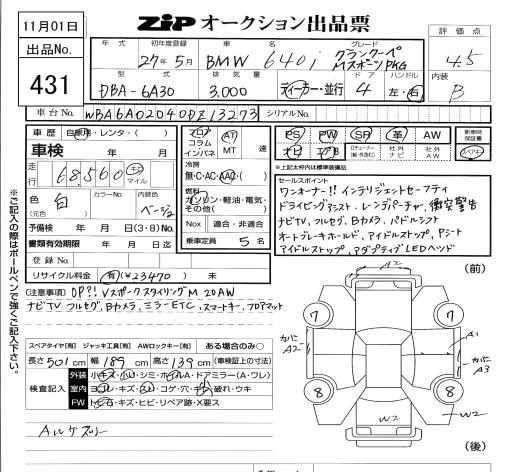 11月01日
ZIP オークション出品票
出品No.
431
評価点
4.5
内装
B
年式 初年度登録 車名 グレード
27年5月 BMW 640i グランクーペ
Mスポーツ PKG
型式 排気量 ドア ハンドル
DBA-6A30 3,000 ディーラー・並行 4 左・右
車台No. WBA6A02040DZ13273 シリアルNo.
車歴 自家用・レンタ・( )
車検 年 月
走行 68,560 km マイル
色 (元色) 白 カラーNo. 内装色 ベージュ
予備検 年 月 日 (3・8) No.
書類有効期限 年 月 日迄
登録No.
リサイクル料金 有(¥23470) 無
フロア
コラム
インパネ
AT
MT 速
冷房
無・C・AC・AAC・( )
燃料
ガソリン・軽油・電気・
その他( )
Nox 適合・非適合
乗車定員 5 名
PS PW SR 革 AW
ナビ TV Dチューナー(純・外含む) 社外ナビ 社外AW
新車時保証書
※上記太枠内は標準装備品
セールスポイント
ワンオーナー!! インテリジェントセーフティ
ドライビングアシスト、レーンデパーチャー、衝突警告
ナビTV、フルセグ、Bカメラ、パドルシフト
オートブレーキホールド、アイドルストップ、Pシート
アイドルストップ、アダプティブLEDヘッド
※ご記入の際はボールペンで強くご記入下さい。
(注意事項) OP?! Vスポークスタイリング M 20AW
ナビTV フルセグ、Bカメラ、ミラーETC、スマートキー、フロアマット
スペアタイヤ[有] ジャッキ工具[有] AWロックキー[有] ある場合のみ○
長さ501cm 幅189cm 高さ139cm (車検証上の寸法)
検査記入
外装 小キズ・小凹・シミ・ホイルA・ドアミラー(A・ワレ)
室内 ヨゴレ・キズ・スレ・コゲ・穴・ハガレ破れ・ウキ
FW トビ石・キズ・ヒビ・リペア跡・X要ス
(前)
A2
7 7
カバー A2
A1
カバー A3
8 8
W2
W2
(後)